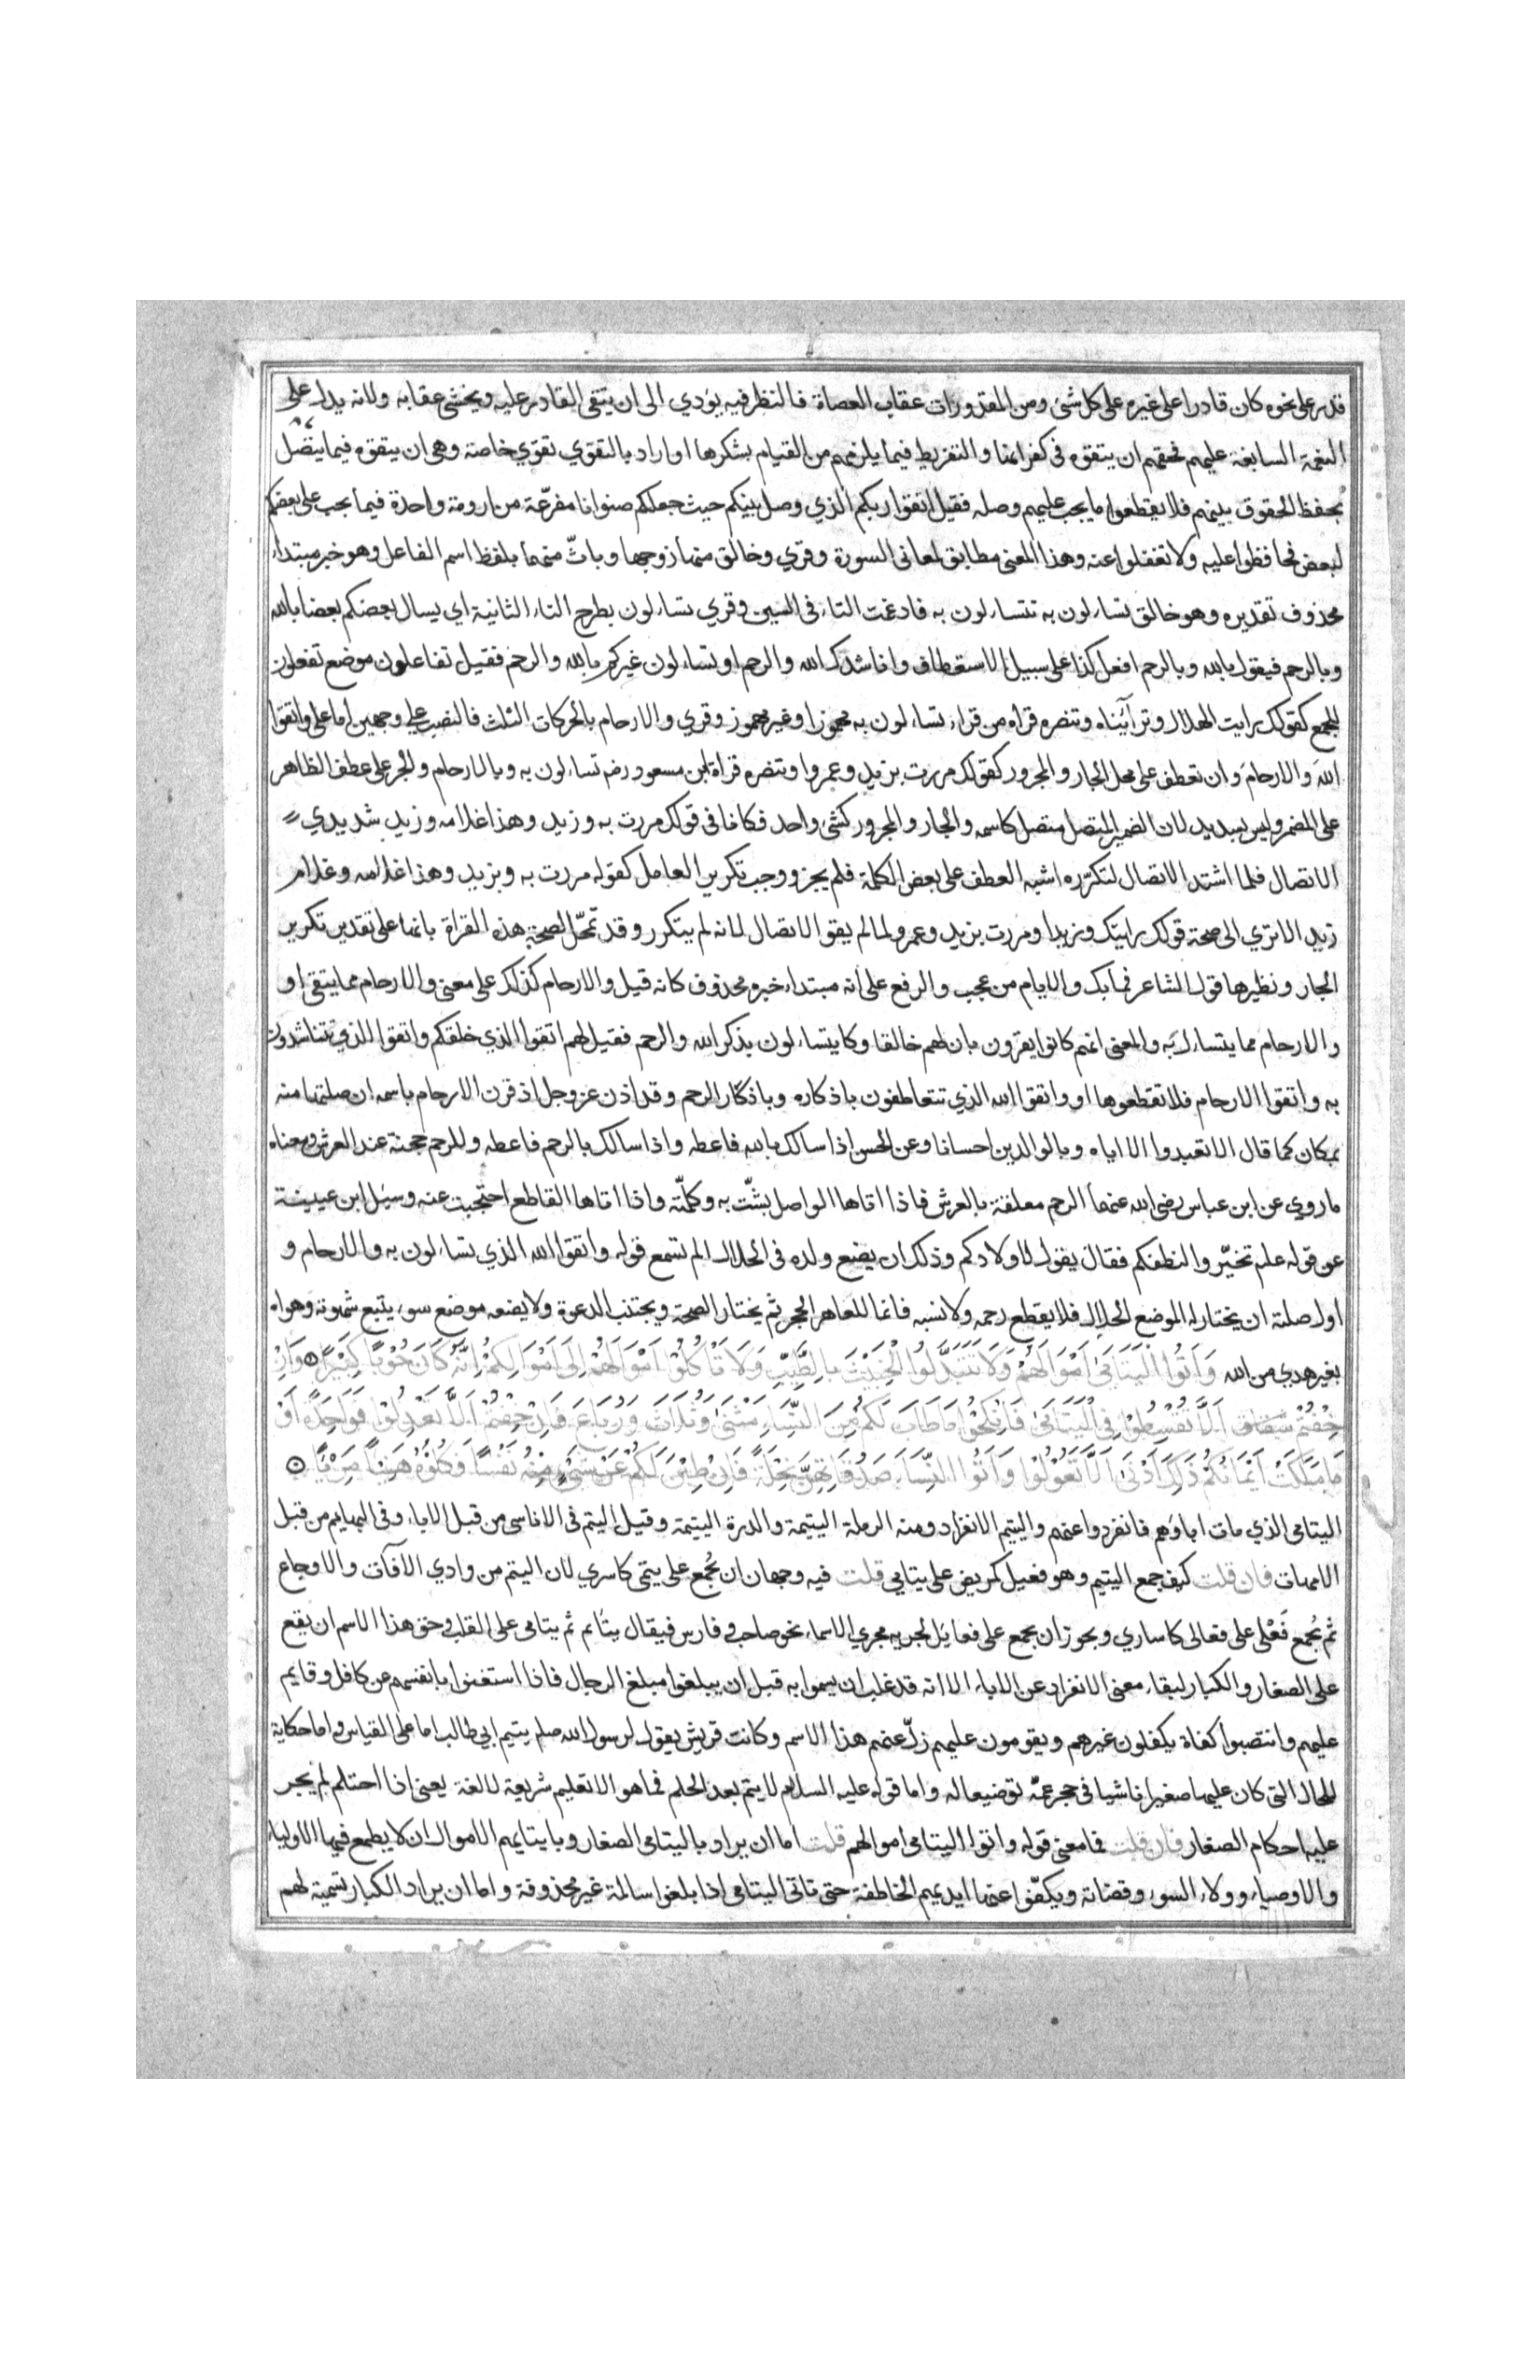 قدر على نحوه كان قادرا على غيره على كل شئ ومن المقدورات عقاب العصاة فالنظر فيه يؤدي الى ان يتقى القادر عليه ويخشى عقابه ولانه يدل على
النعمة السابغة عليهم فحقهم ان يتقوه في كفرانها والتفريط فيما يلزمهم من القيام بشكرها او اراد بالتقوي تقوي خاصة وهى ان يتقوه فيما يتصل
بحفظ الحقوق بينهم فلا يقطعوا ما يجب عليهم وصله فقيل اتقوا ربكم الذي وصل بينكم حيث جعلكم صنوانا مفرّعة من ارومة واحدة فيما يجب على بعضكم
لبعض فحافظوا عليه ولا تغفلوا عنه وهذا المعنى مطابق لمعانى السورة وقري وخالق منها زوجها وباثّ منهما بلفظ اسم الفاعل وهو خبر مبتداء
محذوف تقديره وهو خالق تساءلون به تتساءلون به فادغمت التاء فى السين وقري تساءلون بطرح التاء الثانية اي يسال بعضكم بعضا بالله
وبالرحم فيقول بالله وبالرحم افعل كذا على سبيل الاستعطاف واناشدك الله والرحم او تسالون غيركم بالله والرحم فقيل تفاعلون موضع تفعلون
للجمع كقولك رايت الهلال وتراأيناه وتنصره قراة من قراء تساءلون به مهموزا وغير مهموز وقري والارحام بالحركات الثلث فالنصب على وجهين اما على واتقوا
الله والارحام وان تعطف على محل الجار والمجرور كقولك مررت بزيد وعمروا وتنصره قراة ابن مسعود رضه تساءلون به وبالارحام والجر على عطف الظاهر
على المضمر وليس بسديد لان الضمير المتصل متصل كاسمه والجار والمجرور كشئ واحد فكانا فى قولك مررت به وزيد وهذا غلامه وزيد شديدي
الاتصال فلما اشتد الاتصال لتكرّره اشبه العطف على بعض الكلمة فلم يجز ووجب تكرير العامل كقوله مررت به وبزيد وهذا غلامه وغلام
زيد الا تري الى صحة قولك رايتك وزيدا ومررت بزيد وعمرو لما لم يقو الاتصال لانه لم يتكرر وقد تمحّل لصحة هذه القراة بانها على تقدير تكرير
الجار ونظيرها قول الشاعر فما بك والايام من عجب والرفع على انه مبتداء خبره محذوف كانه قيل والارحام كذلك على معنى والارحام مما يتقى او
والارحام مما يتساءل به والمعنى انهم كانوا يقرون بان لهم خالقا وكا يتساءلون بذكر الله والرحم فقيل لهم اتقوا الذي خلقكم واتقوا الذي تتناشدون
به واتقوا الارحام فلا تقطعوها او واتقوا الله الذي تتعاطفون باذكاره وباذكار الرحم وقد اذن عز وجل اذ قرن الارحام باسمه ان صلتها منه
بمكان كما قال الا تعبدوا الا اياه وبالوالدين احسانا وعن الحسن اذا سالك بالله فاعطه واذا سالك بالرحم فاعطه وللرحم حجنة عند العرش ومعناه
ما روي عن ابن عباس رضى الله عنهما الرحم معلقة بالعرش فاذا اتاها الواصل بشّت به وكلّمته واذا اتاها القاطع احتجبت عنه وسئل ابن عيينة
عن قوله علم تخيّروا لنطفكم فقال يقول لاولادكم وذلك ان يضع ولده فى الحلال الم تسمع قوله واتقوا الله الذي تساءلون به والارحام و
اول صلته ان يختار له الموضع الحلال فلا يقطع رحمه ولا نسبه فانما للعاهر الحجر ثم يختار الصحة ويجتنب الدعوة ولا يضعه موضع سوء يتبع شهوته وهواه
بغير هدي من الله وَآتُوا الْيَتَامَى أَمْوَالَهُمْ وَلَا تَتَبَدَّلُوا الْخَبِيثَ بِالطَّيِّبِ وَلَا تَأْكُلُوا أَمْوَالَهُمْ إِلَى أَمْوَالِكُمْ إِنَّهُ كَانَ حُوبًا كَبِيرًا وَإِنْ
خِفْتُمْ أَلَّا تُقْسِطُوا فِي الْيَتَامَى فَانْكِحُوا مَا طَابَ لَكُمْ مِنَ النِّسَاءِ مَثْنَى وَثُلَاثَ وَرُبَاعَ فَإِنْ خِفْتُمْ أَلَّا تَعْدِلُوا فَوَاحِدَةً أَوْ
مَا مَلَكَتْ أَيْمَانُكُمْ ذَلِكَ أَدْنَى أَلَّا تَعُولُوا وَآتُوا النِّسَاءَ صَدُقَاتِهِنَّ نِحْلَةً فَإِنْ طِبْنَ لَكُمْ عَنْ شَيْءٍ مِنْهُ نَفْسًا فَكُلُوهُ هَنِيئًا مَرِيئًا
اليتامى الذي مات اباؤهم فانفردوا عنهم واليتم الانفراد ومنه الرملة اليتيمة والدرة اليتيمة وقيل اليتم فى الاناسى من قبل الاباء وفى البهايم من قبل
الامهات فان قلت كيف جمع اليتيم وهو فعيل كمريض على يتامي قلت فيه وجهان ان يُجمع على يتمى كاسري لان اليتم من وادي الآفات والاوجاع
ثم يُجمع فَعْلى على فعالى كاساري ويجوز ان يجمع على فعايل لجريه مجري الاسماء نحو صاحب وفارس فيقال يتائم ثم يتامى على القلب وحق هذا الاسم ان يقع
على الصغار والكبار لبقاء معنى الانفراد عن الاباء الا انه قد غلب ان يسموا به قبل ان يبلغوا مبلغ الرجال فاذا استغنوا بانفسهم عن كافل وقايم
عليهم وانتصبوا كفاة يكفلون غيرهم ويقومون عليهم زلّ عنهم هذا الاسم وكانت قريش يقول لرسول الله صلم يتيم ابي طالب اما على القياس واما حكاية
للحال التى كان عليها صغيرا ناشيا فى حجر عمّه توضيعا له واما قوله عليه السلام لا يتم بعد الحلم فما هو الا تعليم شريعة لا لغة يعنى اذا احتلم لم يجر
عليه احكام الصغار فان قلت فما معنى قوله واتوا اليتامى اموالهم قلت اما ان يراد باليتامى الصغار وبايتايهم الاموال ان لا يطمع فيها الاولياء
والاوصياء وولاء السوء وقضاته ويكفّوا عنها ايديهم الخاطفة حتى تاتى اليتامى اذا بلغوا سالمة غير محذوفة واما ان يراد الكبار تسمية لهم